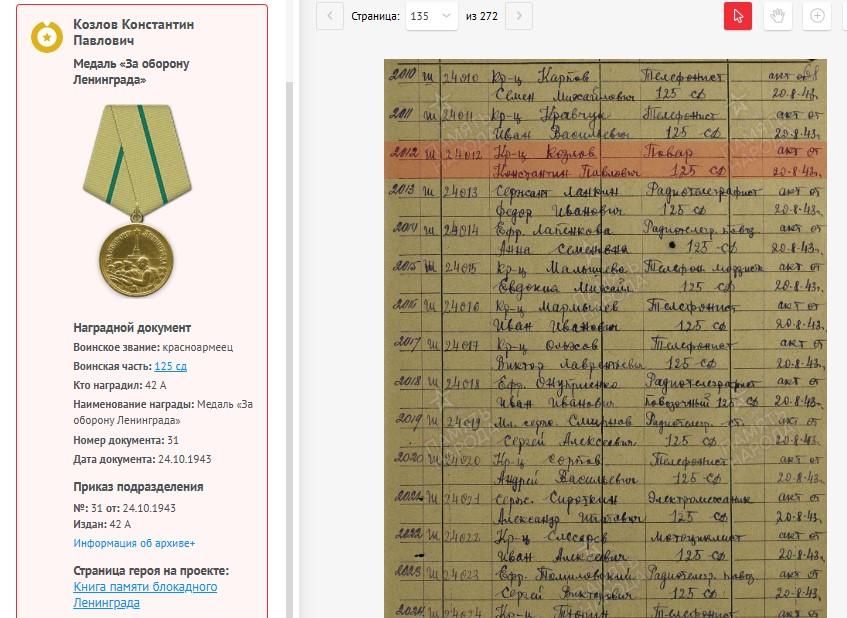 Козлов Константин
Павлович
Медаль «За оборону
Ленинграда»
Наградной документ
Воинское звание: красноармеец
Воинская часть: 125 сд
Кто наградил: 42 А
Наименование награды: Медаль «За
оборону Ленинграда»
Номер документа: 31
Дата документа: 24.10.1943
Приказ подразделения
№: 31 от: 24.10.1943
Издан: 42 А
Информация об архиве+
Страница героя на проекте:
Книга памяти блокадного
Ленинграда
Страница: 135 из 272
2010 Ш 24010 Кр-ц Карпов Телефонист акт от
Семен Михайлович 125 сд 20-8-43г.
2011 Ш 24011 Кр-ц Кравчук Телефонист акт от
Иван Васильевич 125 сд 20-8-43г.
2012 Ш 24012 Кр-ц Козлов Повар акт от
Константин Павлович 125 сд 20-8-43г.
2013 Ш 24013 Сержант Лапкин Радиотелеграфист акт от
Федор Иванович 125 сд 20-8-43г.
2014 Ш 24014 Ефр. Лапенкова Радиотелегр. акт от
Анна Семеновна 125 сд 20-8-43г.
2015 Ш 24015 Кр-ц Малышева Телефон. акт от
Евдокия Михайл 125 сд 20-8-43г.
2016 Ш 24016 Кр-ц Мармышев Телефонист акт от
Иван Иванович 125 сд 20-8-43г.
2017 Ш 24017 Кр-ц Телефонист акт от
Виктор Лаврентьевич 125 сд 20-8-43г.
2018 Ш 24018 Ефр. Онуприенко Радиотелеграфист акт от
Иван Иванович 125 сд 20-8-43г.
2019 Ш 24019 Мл. серж. Смирнов Радиотелегр. ст. акт от
Сергей Алексеевич 125 сд 20-8-43г.
2020 Ш 24020 Кр-ц Телефонист акт от
Андрей Васильевич 125 сд 20-8-43г.
2021 Ш 24021 Серж. Сироткин Электромеханик акт от
Александр Игнатович 125 сд 20-8-43г.
2022 Ш 24022 Кр-ц Слесарев Мотоциклист акт от
Иван Алексеевич 125 сд 20-8-43г.
2023 Ш 24023 Ефр. Томиловский Радиотелегр. акт от
Сергей Викторович 125 сд 20-8-43г.
2024 Ш 24024 Кр-ц Тюрин Телефонист акт от